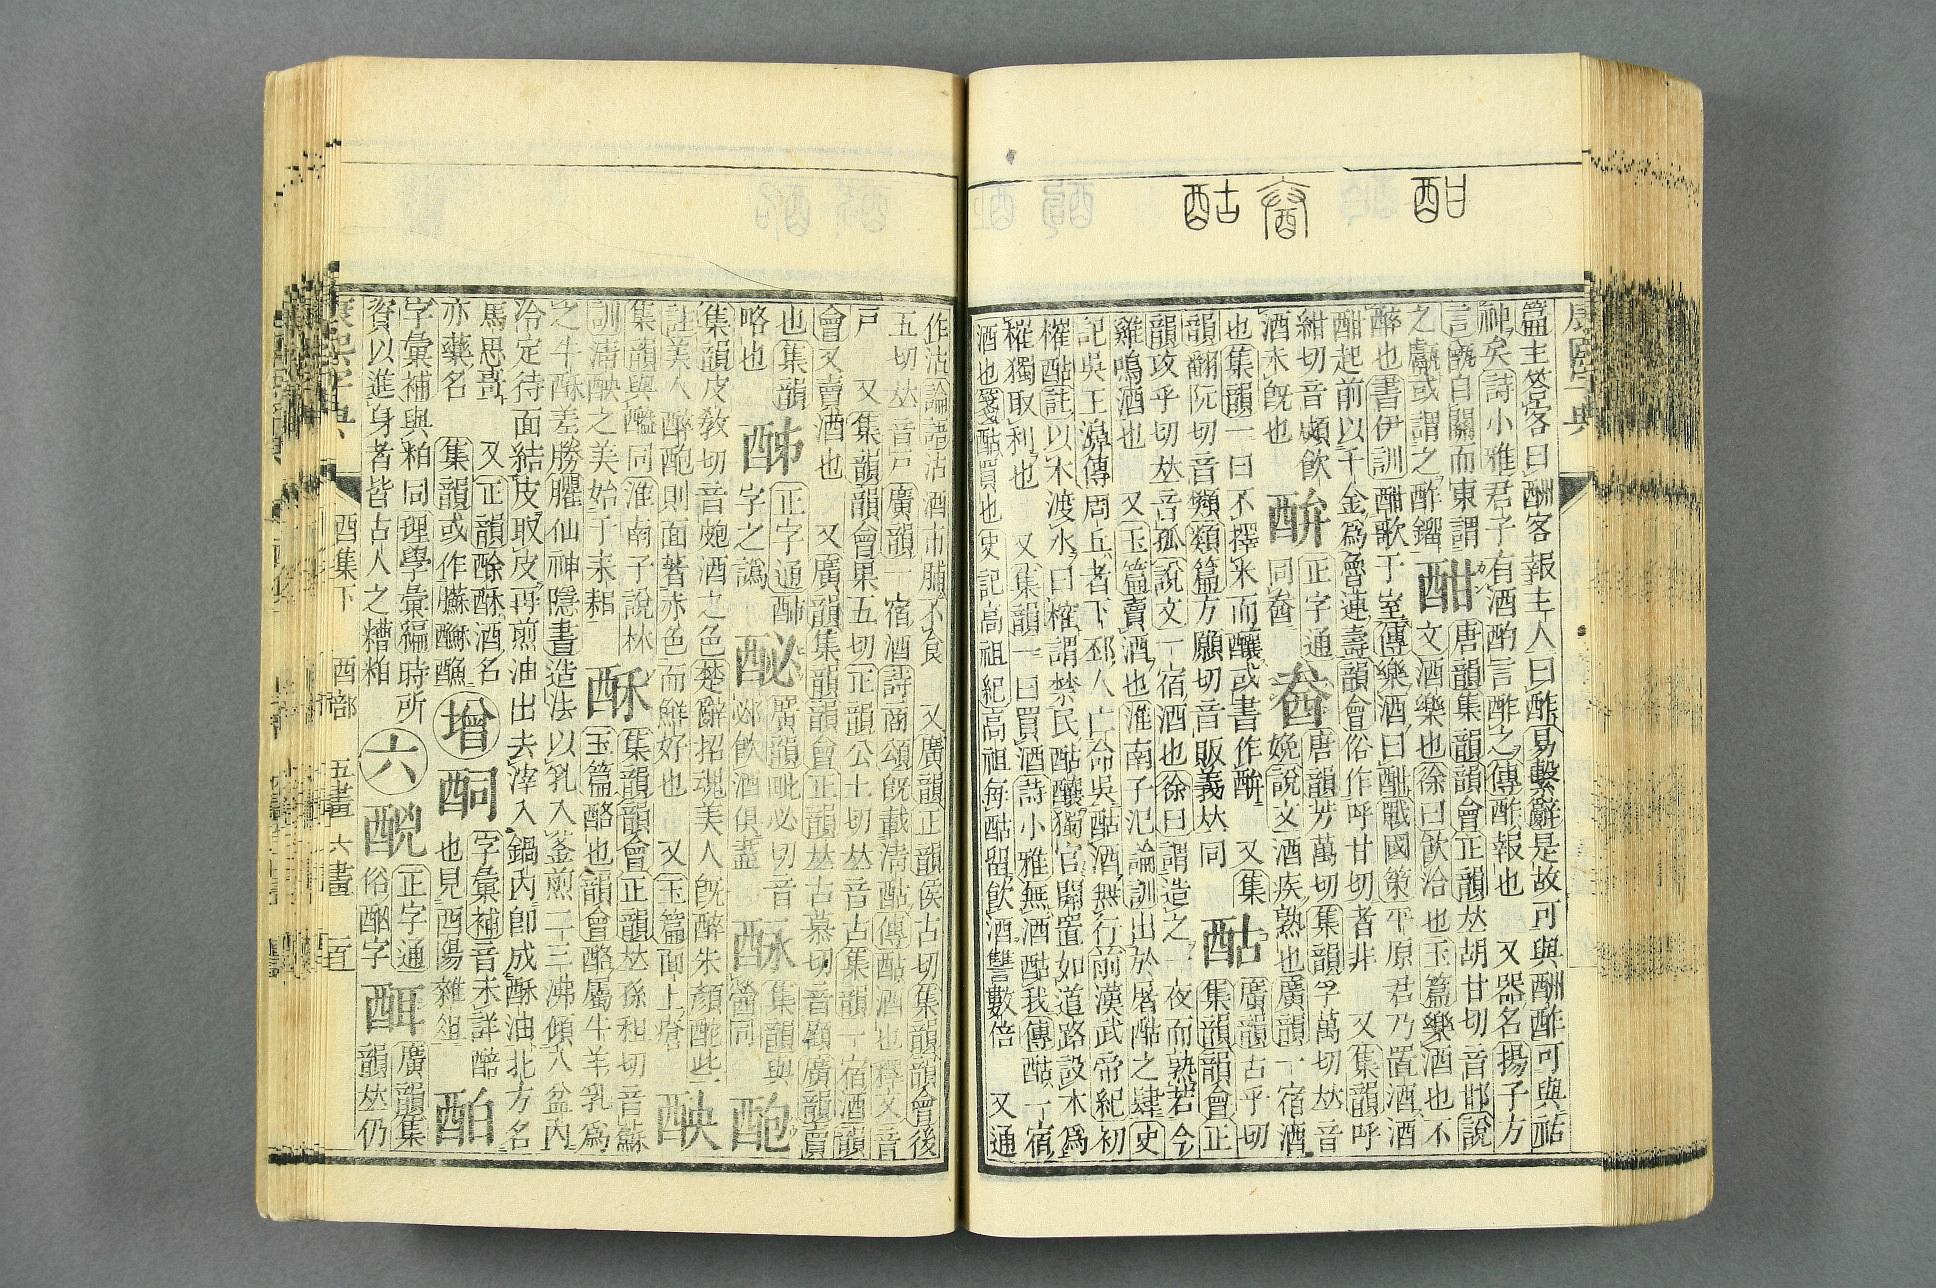 酣 酓 酤
康熙字典
篇主答客曰酬客報主人曰酢易繫辭是故可與酬酢可與祐
神矣詩小雅君子有酒酌言酢之傳酢報也 又器名揚子方
言甗自關而東謂
之甗或謂之酢鎦
酣
唐韻集韻韻會正韻𠀤胡甘切音邯說
文酒樂也徐曰飮洽也玉篇樂酒也不
醉也書伊訓酣歌于室傳樂酒曰酣戰國策平原君乃置酒酒
酣起前以千金爲魯連壽韻會俗作呼甘切者非 又集韻呼
紺切音顣飮
酒未旣也
酼
正字通
同畚
畚
唐韻芳萬切集韻孚萬切𠀤音
娩說文酒疾熟也廣韻一宿酒
也集韻一曰不擇米而釀或書作䣫 又集
韻翻阮切音㘕類篇方願切音販義𠀤同
酤
廣韻古乎切
集韻韻會正
韻攻乎切𠀤音孤說文一宿酒也徐曰謂造之一夜而熟若今
雞鳴酒也 又玉篇賣酒也淮南子氾論訓出於屠酤之肆史
記吳王濞傳周丘者下邳人亡命吳酤酒無行前漢武帝紀初
榷酤註以木渡水曰榷謂禁民酤釀獨官開置如道路設木爲
榷獨取利也 又集韻一曰買酒詩小雅無酒酤我傳酤一宿
酒也箋酤買也史記高祖紀高祖每酤留飮酒讐數倍 又通
作沽論語沽酒市脯不食 又廣韻正韻侯古切集韻韻會後
五切𠀤音戸廣韻一宿酒詩商頌旣載淸酤傳酤酒也釋文音
戸 又集韻韻會果五切正韻公土切𠀤音古集韻一宿酒韻
會又賣酒也 又廣韻集韻韻會正韻𠀤古慕切音顧廣韻賣
也集韻
略也
䣋
正字通酧
字之譌
䣥
廣韻毗必切音
邲飮酒俱盡
䣩
集韻與
䤖同
䣪
集韻皮敎切音皰酒之色楚辭招魂美人旣醉朱顏酡些
註美人醉酏則面著赤色而鮮好也 又玉篇面上瘡
䣐
集韻與醠同淮南子說林
訓淸䣐之美始于耒耜
酥
集韻韻會正韻𠀤孫租切音蘇
玉篇酪也韻會酪屬牛羊乳爲
之牛酥差勝臞仙神隱書造法以乳入釜煎二三沸傾入盆內
冷定待面結皮取皮再煎油出去滓入鍋內卽成酥油北方名
馬思哥 又正韻酴酥酒名
亦藥名 集韻或作䤓𨢢䱷
增
䣭
字彙補音未詳䣭
也見酉陽雜俎
䣮
字彙補與粕同理學彙編時所
資以進身者皆古人之糟粕
六
䣺
正字通
俗䣺字
䣵
廣韻集
韻𠀤仍
康熙字典 酉集下 酉部 五畫 六畫 三